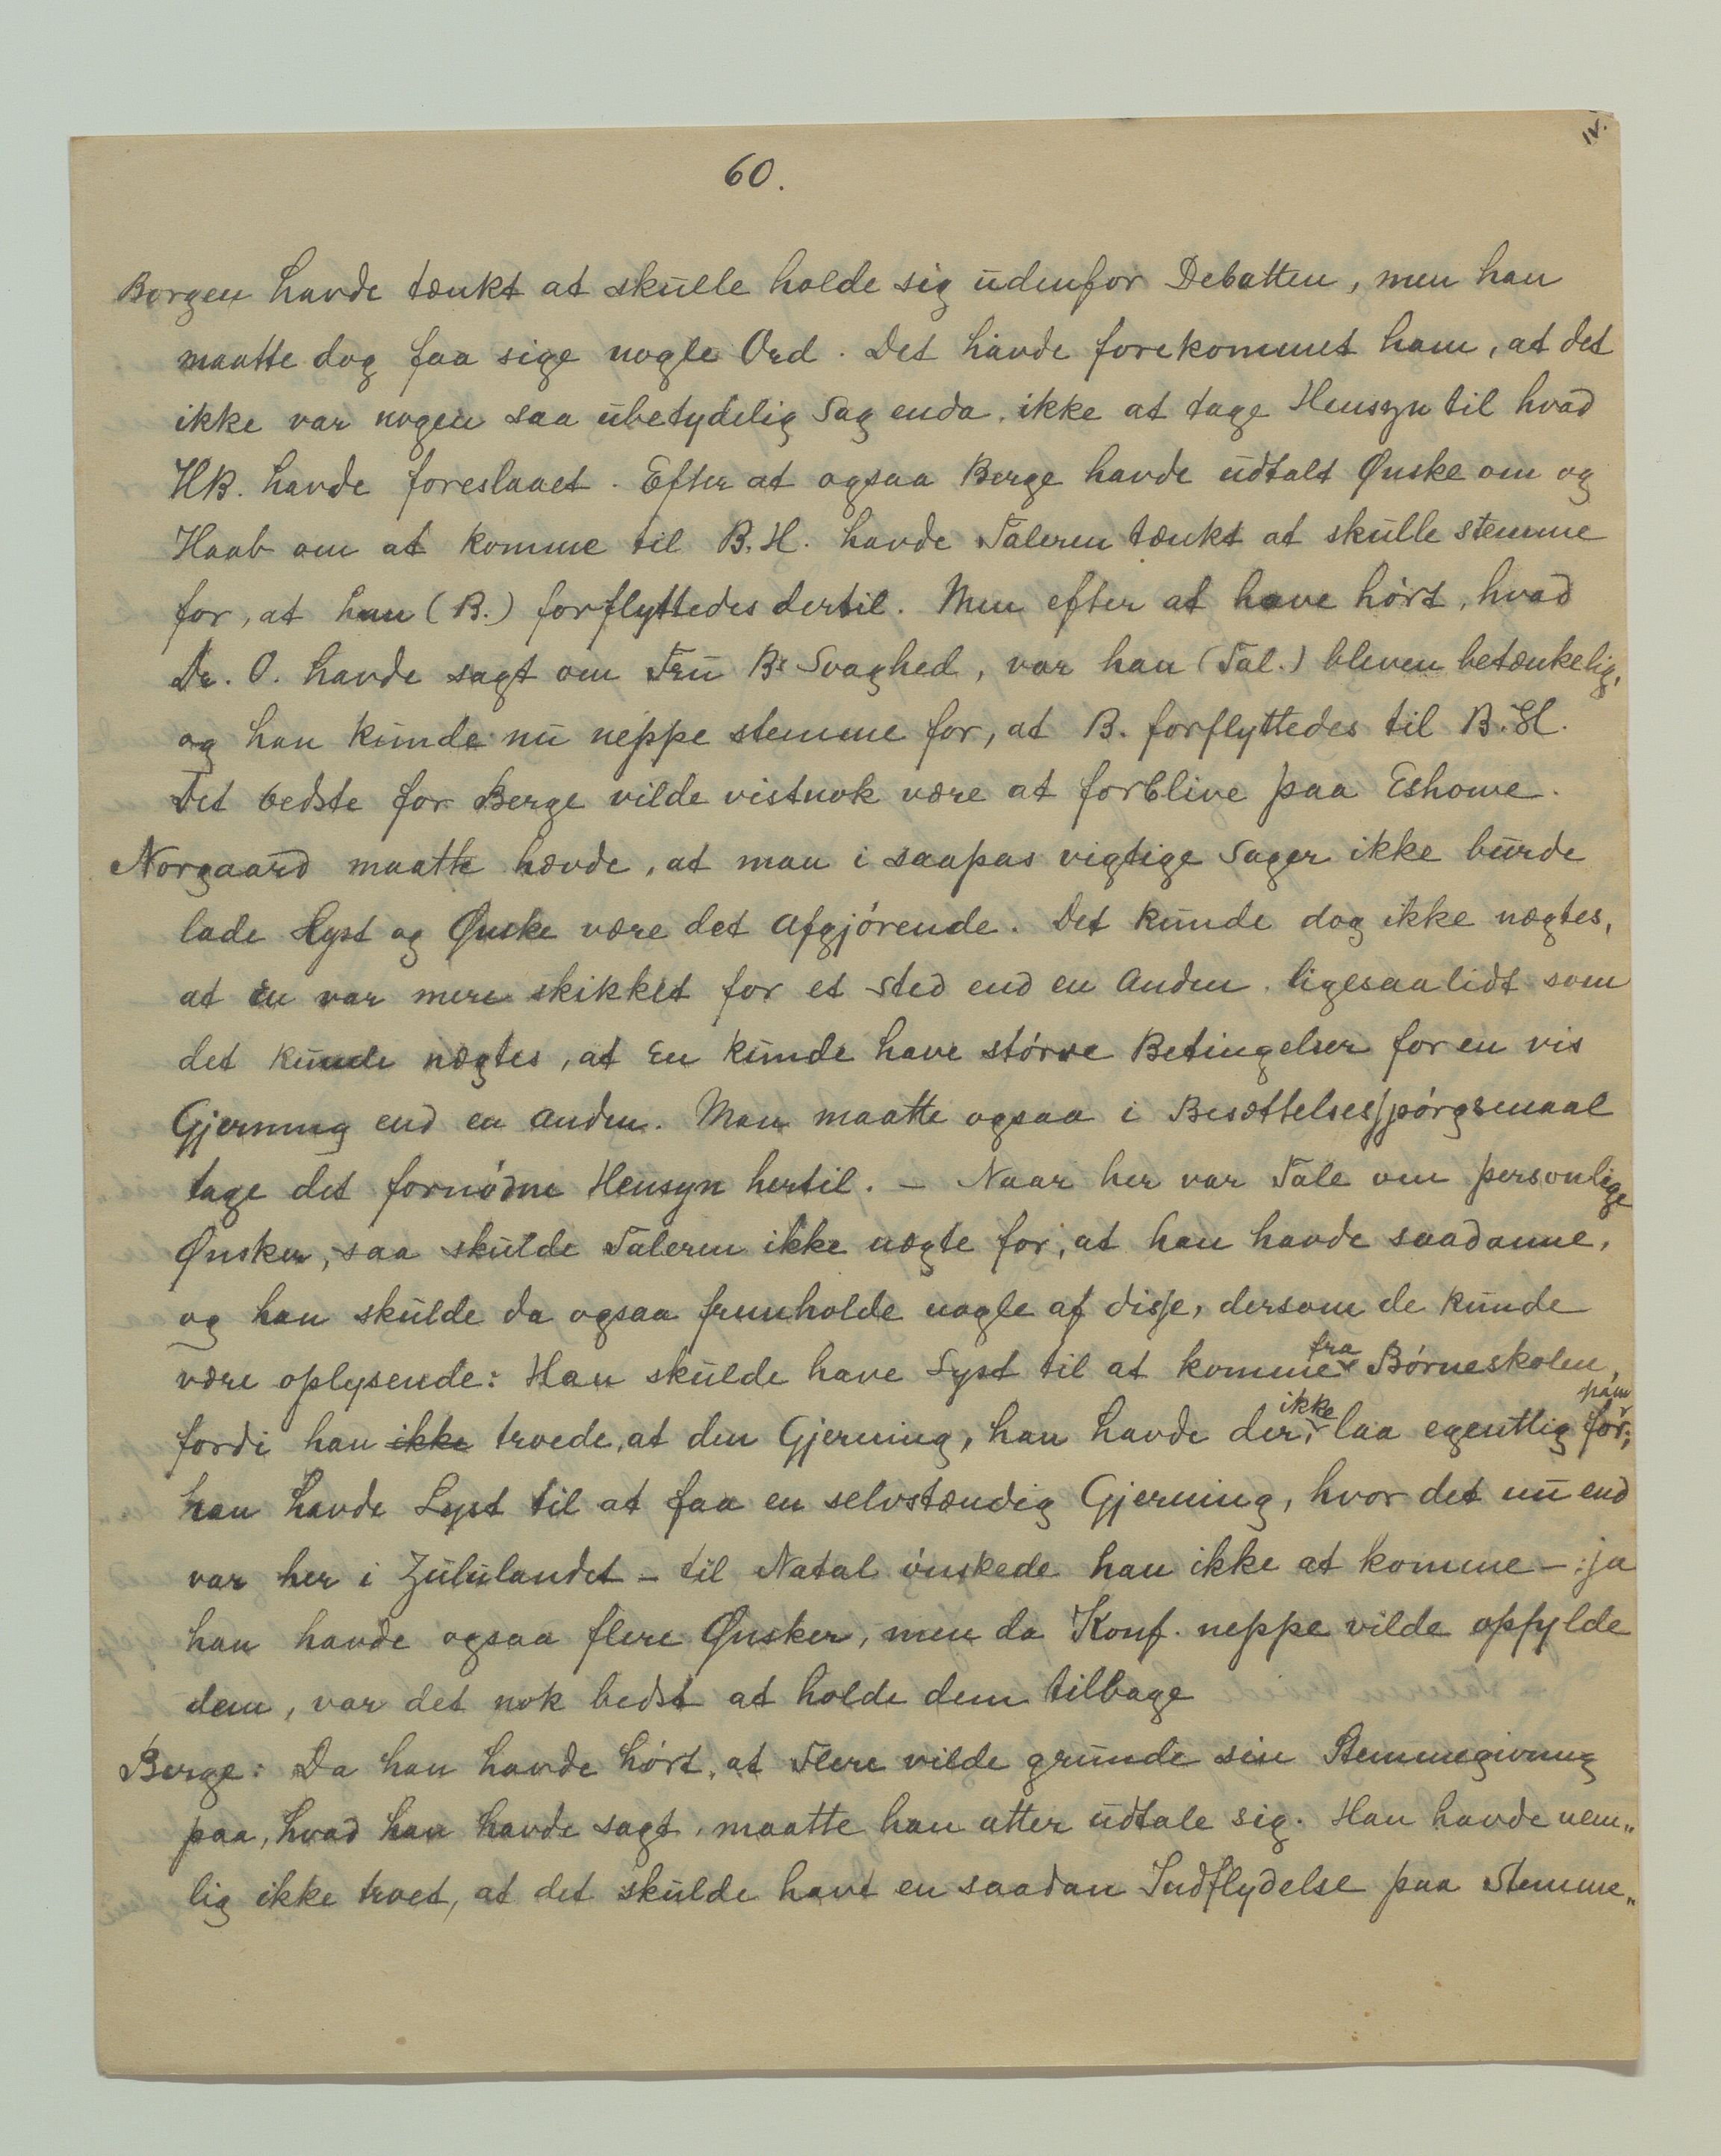 IV.
60.
Borgen havde tænkt at skulle holde sig udenfor Debatten, men han
maatte dog faa sige nogle Ord. Det havde forekommet ham, at det
ikke var nogen saa ubetydelig Sag enda, ikke at tage Hensyn til hvad
HB. havde foreslaaet. Efter at ogsaa Berge havde udtalt Ønske om og
Haab om at komme til B.H. havde Taleren tænkt at skulle stemme
for, at han (B.) forflyttedes dertil. Men efter at have hørt, hvad
Dr. O. havde sagt om Fru Bs Svaghed, var han (Tal.) bleven betænkelig,
og han kunde nu neppe stemme for, at B. forflyttedes til B.H.
Det bedste for Berge vilde vistnok være at forblive paa Eshowe.
Norgaard maatte hævde, at man i saapas vigtige Sager ikke burde
lade Lyst og Ønske være det afgjørende. Det kunde dog ikke nægtes,
at En var mere skikket for et Sted end en Anden, ligesaalidt som
det kunde nægtes, at En kunde have større Betingelser for en vis
Gjerning end en anden. Man maatte ogsaa i Besættelsesspørgsmaal
tage det fornødne Hensyn hertil. — Naar her var Tale om personlige
Ønsker, saa skulde Taleren ikke nægte for, at han havde saadanne,
og han skulde da ogsaa fremholde nogle af disse, dersom de kunde
være oplysende: Han skulde have Lyst til at komme fra Børneskolen,
fordi han ikke troede, at den Gjerning, han havde der, ikke laa egentlig for ham;
han havde Lyst til at faa en selvstændig Gjerning, hvor det nu end
var her i Zululandet — til Natal ønskede han ikke at komme —; ja
han havde ogsaa flere Ønsker, men da Konf. neppe vilde opfylde
dem, var det nok bedst at holde dem tilbage
Berge: Da han havde hørt, at Flere vilde grunde sin Stemmegivning
paa, hvad han havde sagt, maatte han atter udtale sig. Han havde nem„
lig ikke troet, at det skulde havt en saadan Indflydelse paa Stemme„